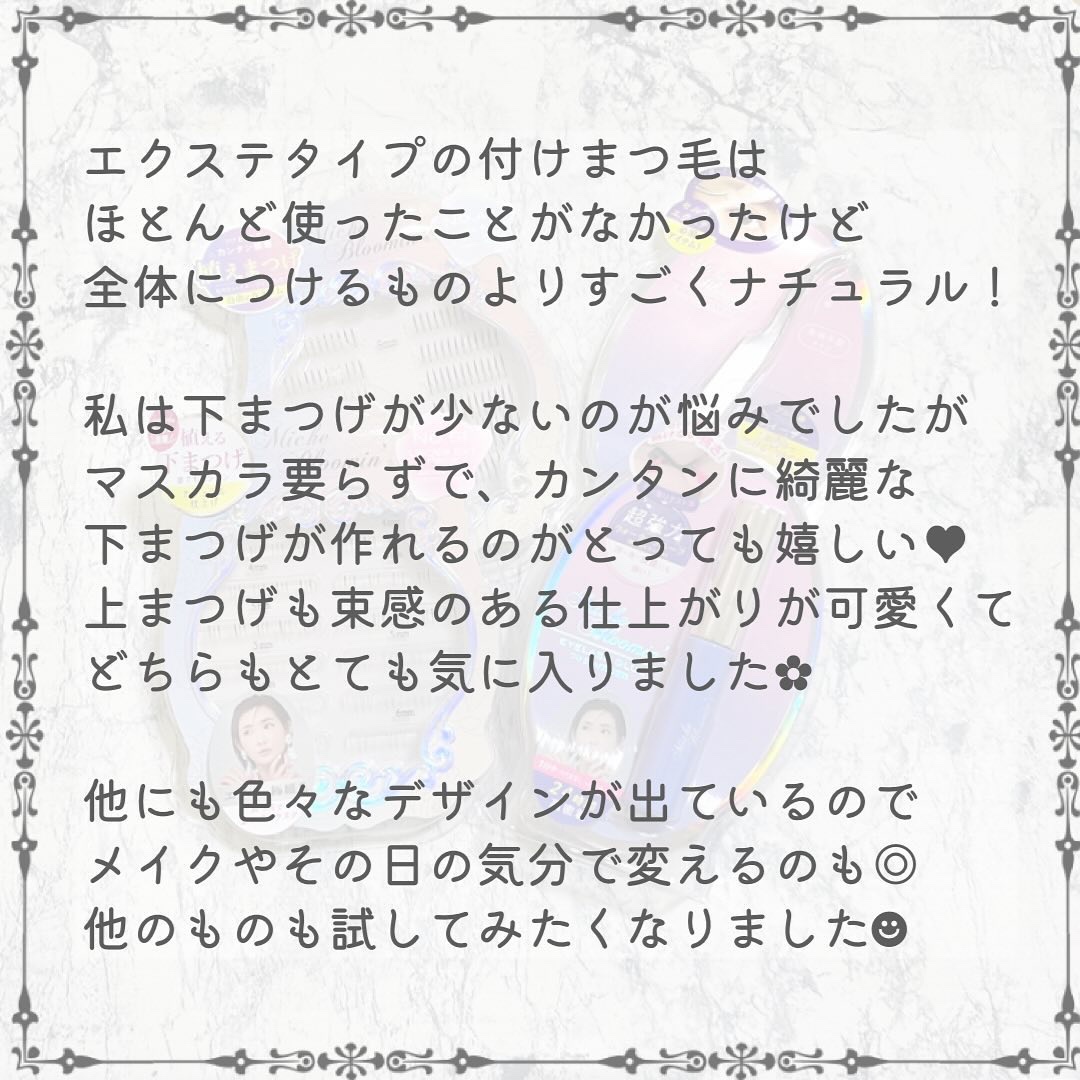 エクステタイプの付けまつ毛は
ほとんど使ったことがなかったけど
全体につけるものよりすごくナチュラル！
私は下まつげが少ないのが悩みでしたが
マスカラ要らずで、カンタンに綺麗な
下まつげが作れるのがとっても嬉しい♥
上まつげも束感のある仕上がりが可愛くて
どちらもとても気に入りました✿
他にも色々なデザインが出ているので
メイクやその日の気分で変えるのも◎
他のものも試してみたくなりました☻